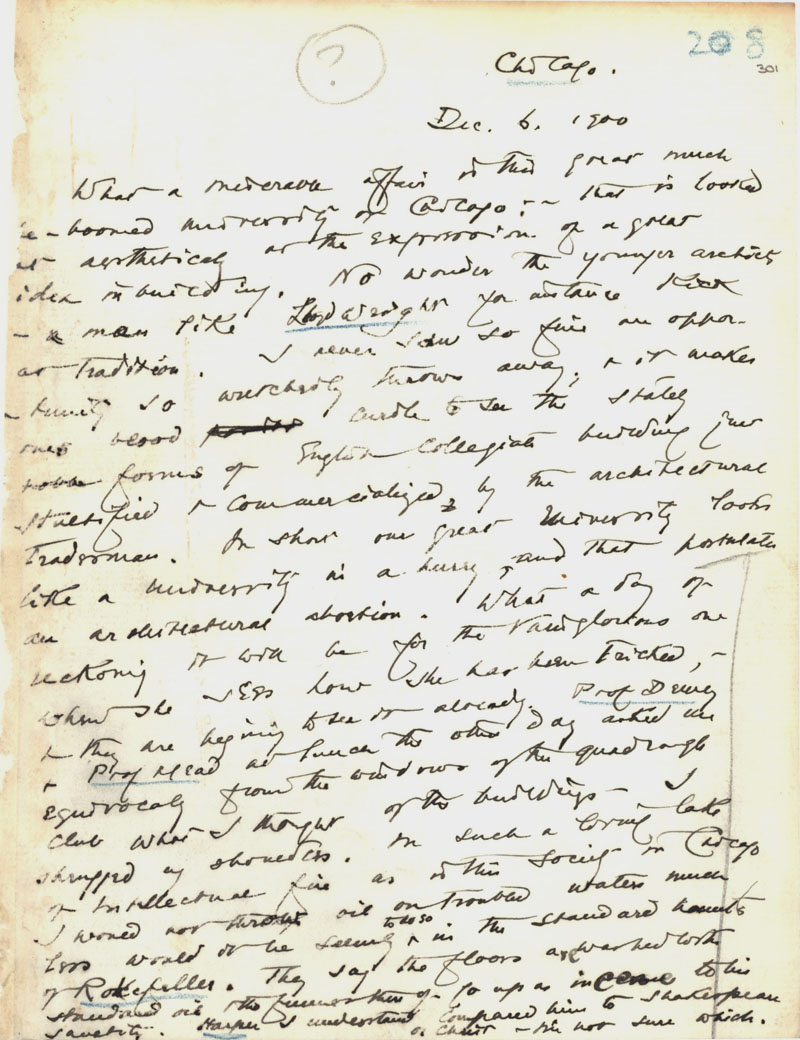 208
301
?
Chicago.
Dec. 6. 1900
What a miserable affair is this great much
be-boomed university of Chicago; - that is looked
at aesthetically as the expression of a great
idea in building. No wonder the younger architects
- a man like Lloyd Wright for instance kick
at tradition. I never saw so fine an oppor-
tunity so wretchedly thrown away; & it makes
ones blood curdle to see the stately
forms of English Collegiate building
stultified & commercialized by the architectural
tradesman. In short our great University looks
like a university in a hurry, and that postulates
an architectural abortion. What a day of
reckoning it will be for the vainglorious one
when she sees how she has been tricked, -
& they are beginning to see it already. Prof Dewey
& Prof Mead at lunch the other day asked me
equivocally from the windows of the quadrangle
club what I thought of the buildings - I
shrugged my shoulders. In such a loving lake
of intellectual fire as is this society in Chicago
I would not throw oil on troubled waters much
less would it be seemly to do so in the standard haunts
of Rokefeller. They say the floors are washed with
standard oil & the fumes thereof go up as incense to his
sanctity. Harper I understand compared him to Shakespeare
or Christ - I'm not sure which.